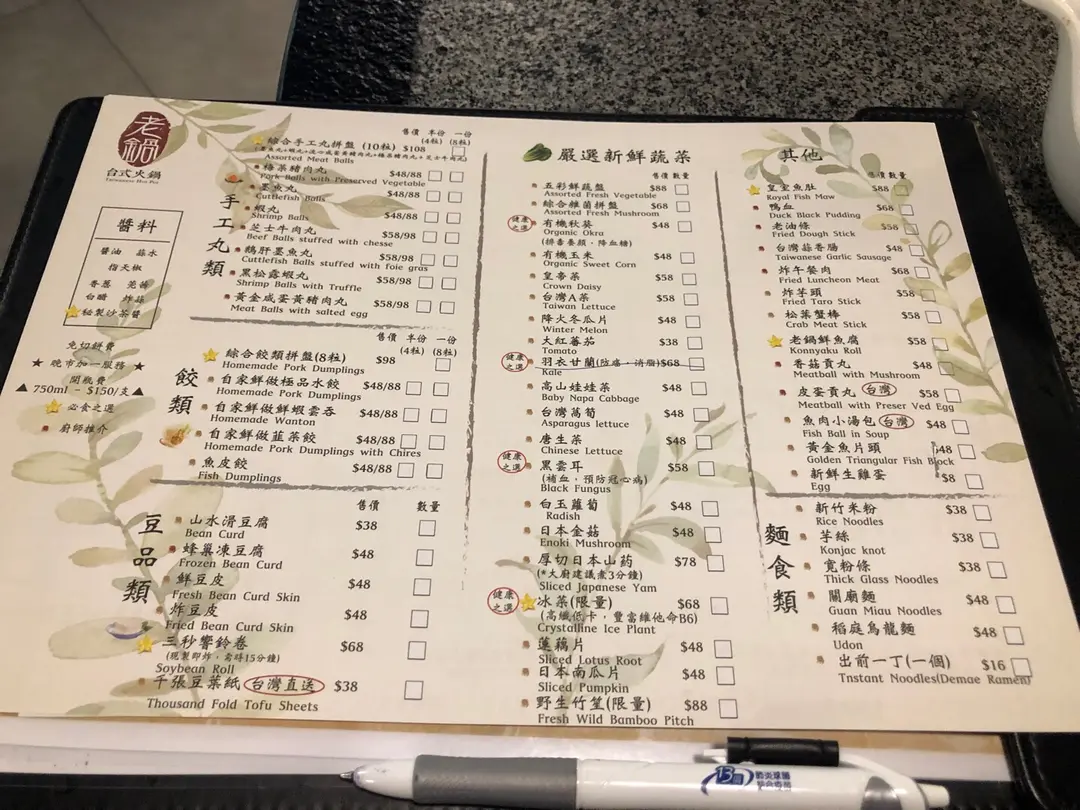 老鍋
台式火鍋
Taiwanese Hot Pot
醬料
醬油 蒜水
指天椒
香蔥 芫茜
白醋 炸蒜
秘製沙茶醬
免切餅費
★ 晚市加一服務 ★
開瓶費
▲ 750ml - $150/支 ▲
必食之選
廚師推介
手工丸類
售價 半份 一份
(4粒) (8粒)
綜合手工丸拼盤 (10粒) $108
Assorted Meat Balls
梅菜豬肉丸 $48/88
Pork Balls with Preserved Vegetable
墨魚丸 $48/88
Cuttlefish Balls
蝦丸 $48/88
Shrimp Balls
芝士牛肉丸 $58/98
Beef Balls stuffed with chesse
鵝肝墨魚丸 $58/98
Cuttlefish Balls stuffed with foie gras
黑松露蝦丸 $58/98
Shrimp Balls with Truffle
黃金咸蛋黃豬肉丸 $58/98
Meat Balls with salted egg
餃類
售價 半份 一份
(4粒) (8粒)
綜合餃類拼盤(8粒) $98
Homemade Pork Dumplings
自家鮮做極品水餃 $48/88
Homemade Pork Dumplings
自家鮮做鮮蝦雲吞 $48/88
Homemade Wanton
自家鮮做韮菜餃 $48/88
Homemade Pork Dumplings with Chires
魚皮餃 $48/88
Fish Dumplings
豆品類
售價 數量
山水滑豆腐 $38
Bean Curd
蜂巢凍豆腐 $48
Frozen Bean Curd
鮮豆皮 $48
Fresh Bean Curd Skin
炸豆皮 $48
Fried Bean Curd Skin
三秒響鈴卷 $68
(現製即炸，需時15分鐘)
Soybean Roll
千張豆葉紙 台灣直送 $38
Thousand Fold Tofu Sheets
嚴選新鮮蔬菜
售價 數量
五彩鮮蔬盤 $88
Assorted Fresh Vegetable
綜合雜菌拼盤 $68
Assorted Fresh Mushroom
健康之選 有機秋葵 $48
Organic Okra
(排毒養顏，降血糖)
有機玉米 $48
Organic Sweet Corn
皇帝菜 $58
Crown Daisy
台灣A菜 $58
Taiwan Lettuce
降火冬瓜片 $48
Winter Melon
大紅蕃茄 $38
Tomato
健康之選 羽衣甘蘭(防癌，消脂) $68
Kale
高山娃娃菜 $48
Baby Napa Cabbage
台灣萵筍 $48
Asparagus lettuce
唐生菜 $48
Chinese Lettuce
健康之選 黑雲耳 $58
(補血，預防冠心病)
Black Fungus
白玉蘿蔔 $48
Radish
日本金菇 $48
Enoki Mushroom
厚切日本山药 $78
(*大廚建議煮3分鐘)
Sliced Japanese Yam
健康之選 冰菜(限量) $68
(高纖低卡，豐富維他命B6)
Crystalline Ice Plant
蓮藕片 $48
Sliced Lotus Root
日本南瓜片 $48
Sliced Pumpkin
野生竹笙(限量) $88
Fresh Wild Bamboo Pitch
其他
售價 數量
皇室魚肚 $88
Royal Fish Maw
鴨血 $68
Duck Black Pudding
老油條 $58
Fried Dough Stick
台灣蒜香腸 $48
Taiwanese Garlic Sausage
炸午餐肉 $68
Fried Luncheon Meat
炸芋頭 $58
Fried Taro Stick
松葉蟹棒 $58
Crab Meat Stick
老鍋鮮魚腐 $58
Konnyaku Roll
香菇貢丸 $48
Meatball with Mushroom
皮蛋貢丸 台灣 $58
Meatball with Preser Ved Egg
魚肉小湯包 台灣 $48
Fish Ball in Soup
黃金魚片頭 $48
Golden Triangular Fish Block
新鮮生雞蛋 $8
Egg
麵食類
新竹米粉 $38
Rice Noodles
芋絲 $38
Konjac knot
寬粉條 $38
Thick Glass Noodles
關廟麵 $48
Guan Miau Noodles
稻庭烏龍麵 $48
Udon
出前一丁(一個) $16
Tnstant Noodles(Demae Ramen)